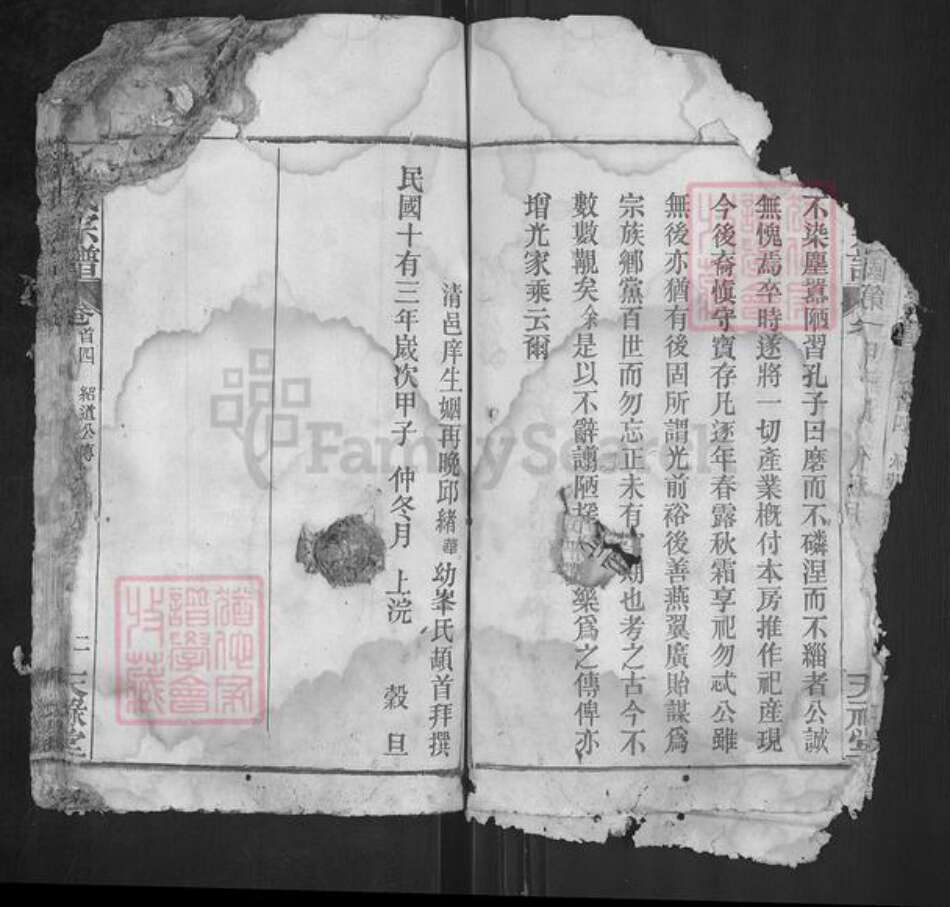 不染塵囂陋習孔子曰磨而不磷涅而不緇者公誠
無愧焉卒時遂將一切產業概付本房推作祀產現
今後裔慎守寶存凡逐年春露秋霜享祀勿忒公雖
無後亦猶有後固所謂光前裕後善燕翼廣貽謀爲
宗族鄉黨百世而勿忘正未有期也考之古今不
數數覯矣余是以不辭譾陋樂爲之傳俾亦
增光家乘云爾
清邑庠生姻再晚邱緒華幼峯氏頓首拜撰
民國十有三年歲次甲子仲冬月上浣穀旦
宗譜
卷首四
紹道公傳
二
天祿堂
FamilySearch
譜學會
收藏